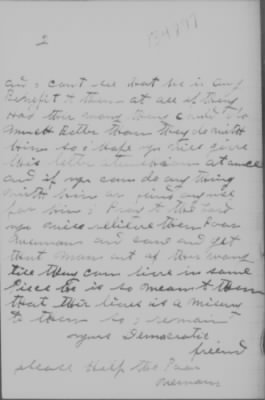 2
and i cant see that he is any
Benefit to them at all if they
Had the money they could do
much Better than they do with
him so i hope you will give
this letter attendion at ance
and if you can do any thing
with him or send any
for him i Pray to the Lord
you will relieve them Poor
and and get
that man out of the way
till they can live in some
Piece he is so mean to them
that their lives is a misery
to them so i remain
yours Democratic
friend
please Help the Poor